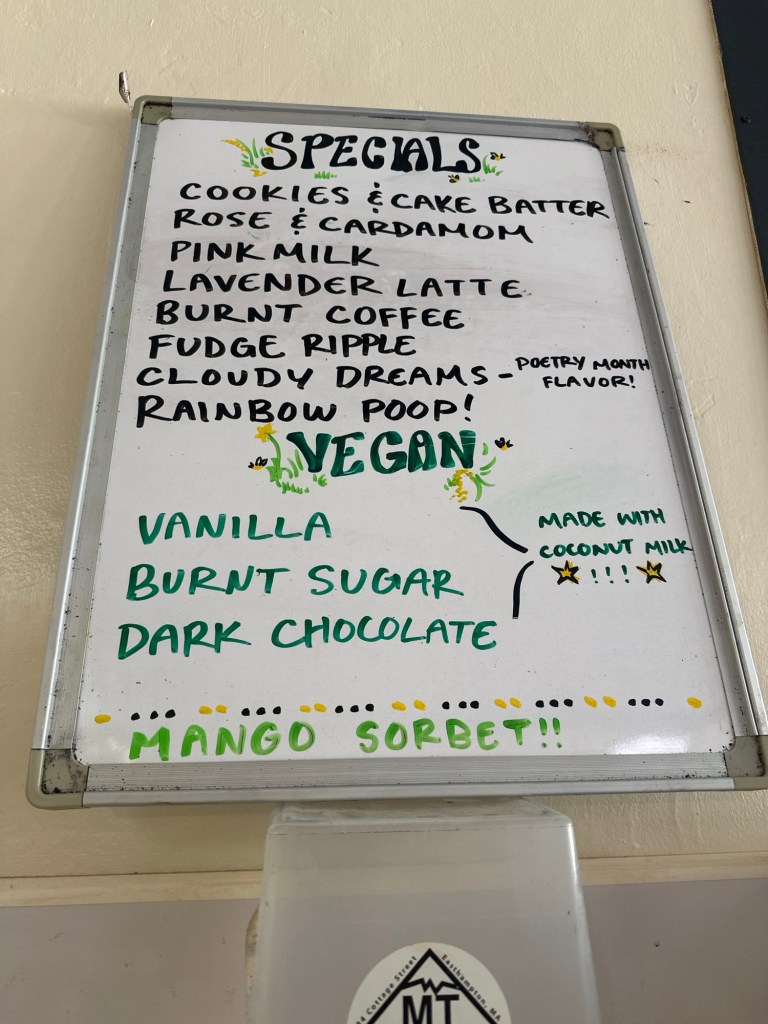 SPECIALS
COOKIES & CAKE BATTER
ROSE & CARDAMOM
PINK MILK
LAVENDER LATTE
BURNT COFFEE
FUDGE RIPPLE
CLOUDY DREAMS - POETRY MONTH
FLAVOR!
RAINBOW POOP!
VEGAN
VANILLA
BURNT SUGAR
DARK CHOCOLATE
MADE WITH
COCONUT MILK
!!!
MANGO SORBET!!
Cottage Street
Easthampton, MA
MT